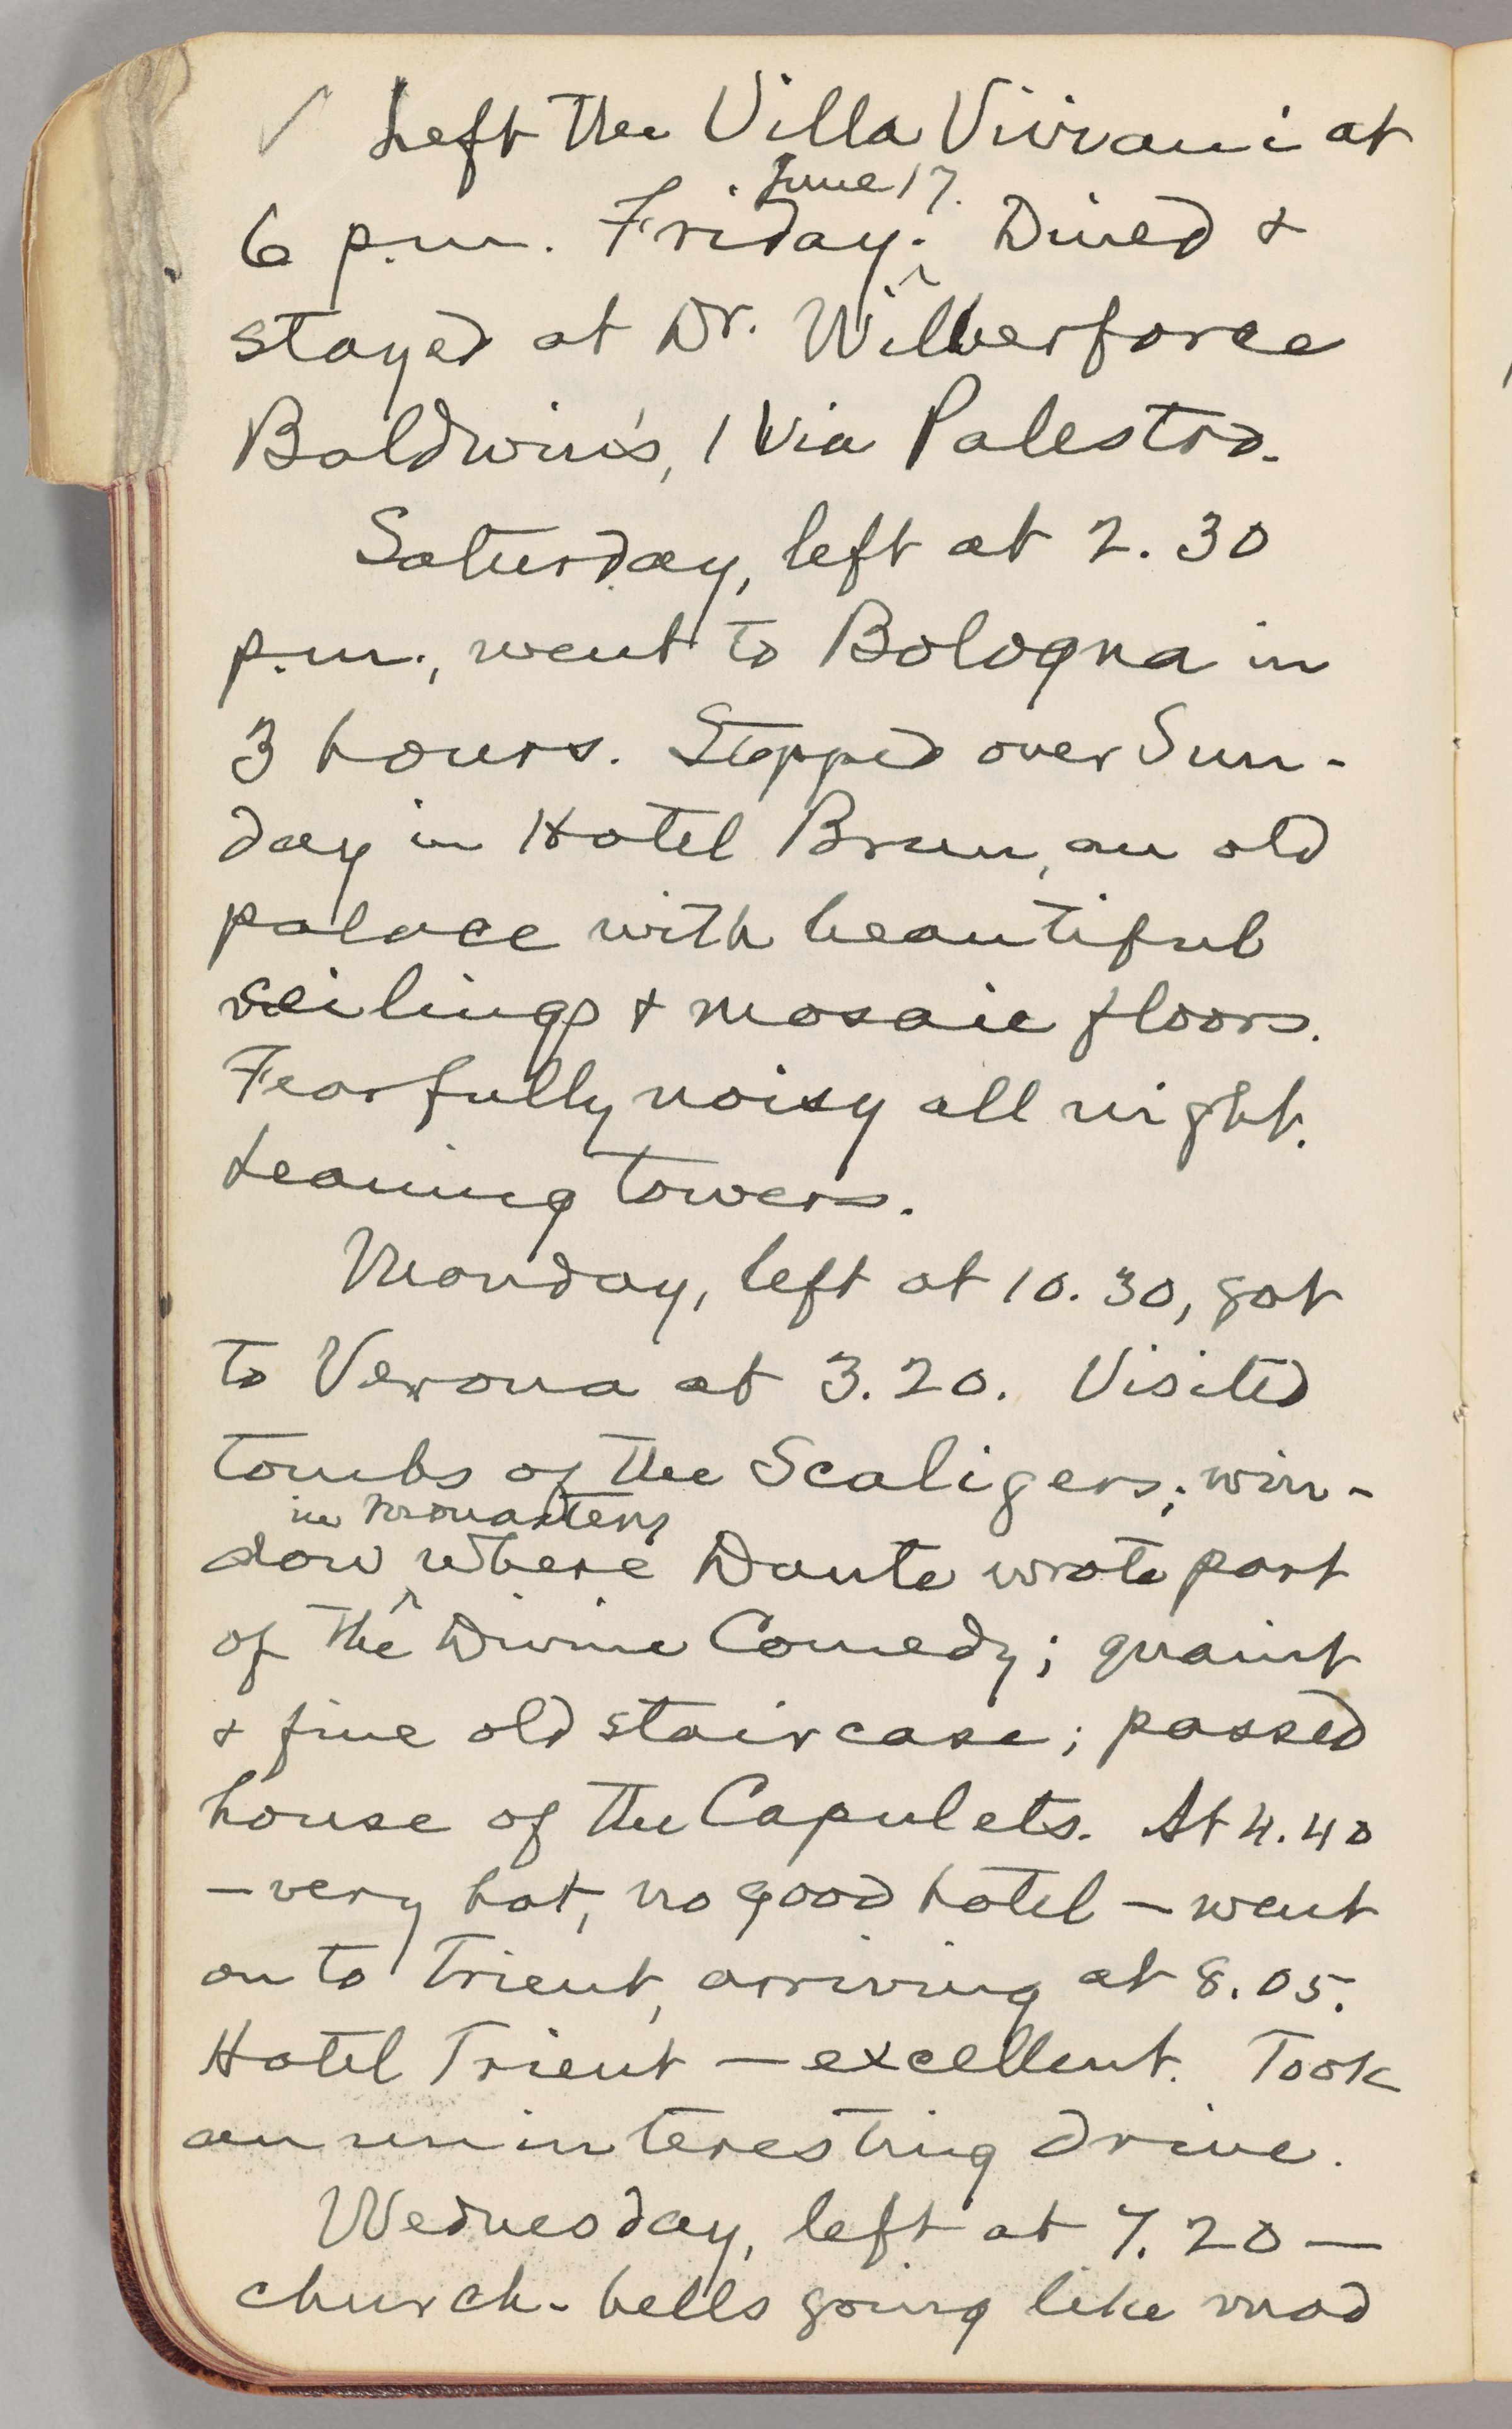 ✓ Left the Villa Viviani at
June 17.
6 p.m. Friday. ^ Dined &
stayed at Dr. Wilberforce
Baldwin's, 1 Via Palestro.
Saturday, left at 2.30
p.m., went to Bologna in
3 hours. Stopped over Sun-
day in Hotel Brun, an old
palace with beautiful
ceilings & mosaic floors.
Fearfully noisy all night.
Leaning towers.
Monday, left at 10.30, got
to Verona at 3.20. Visited
tombs of the Scaligers; win-
in monastery
dow ^ where Dante wrote part
of the Divine Comedy; quaint
& fine old staircase; passed
house of the Capulets. At 4.40
—very hot, no good hotel — went
on to Trient, arriving at 8.05.
Hotel Trient — excellent. Took
an uninteresting drive.
Wednesday, left at 7.20 —
church-bells going like mad